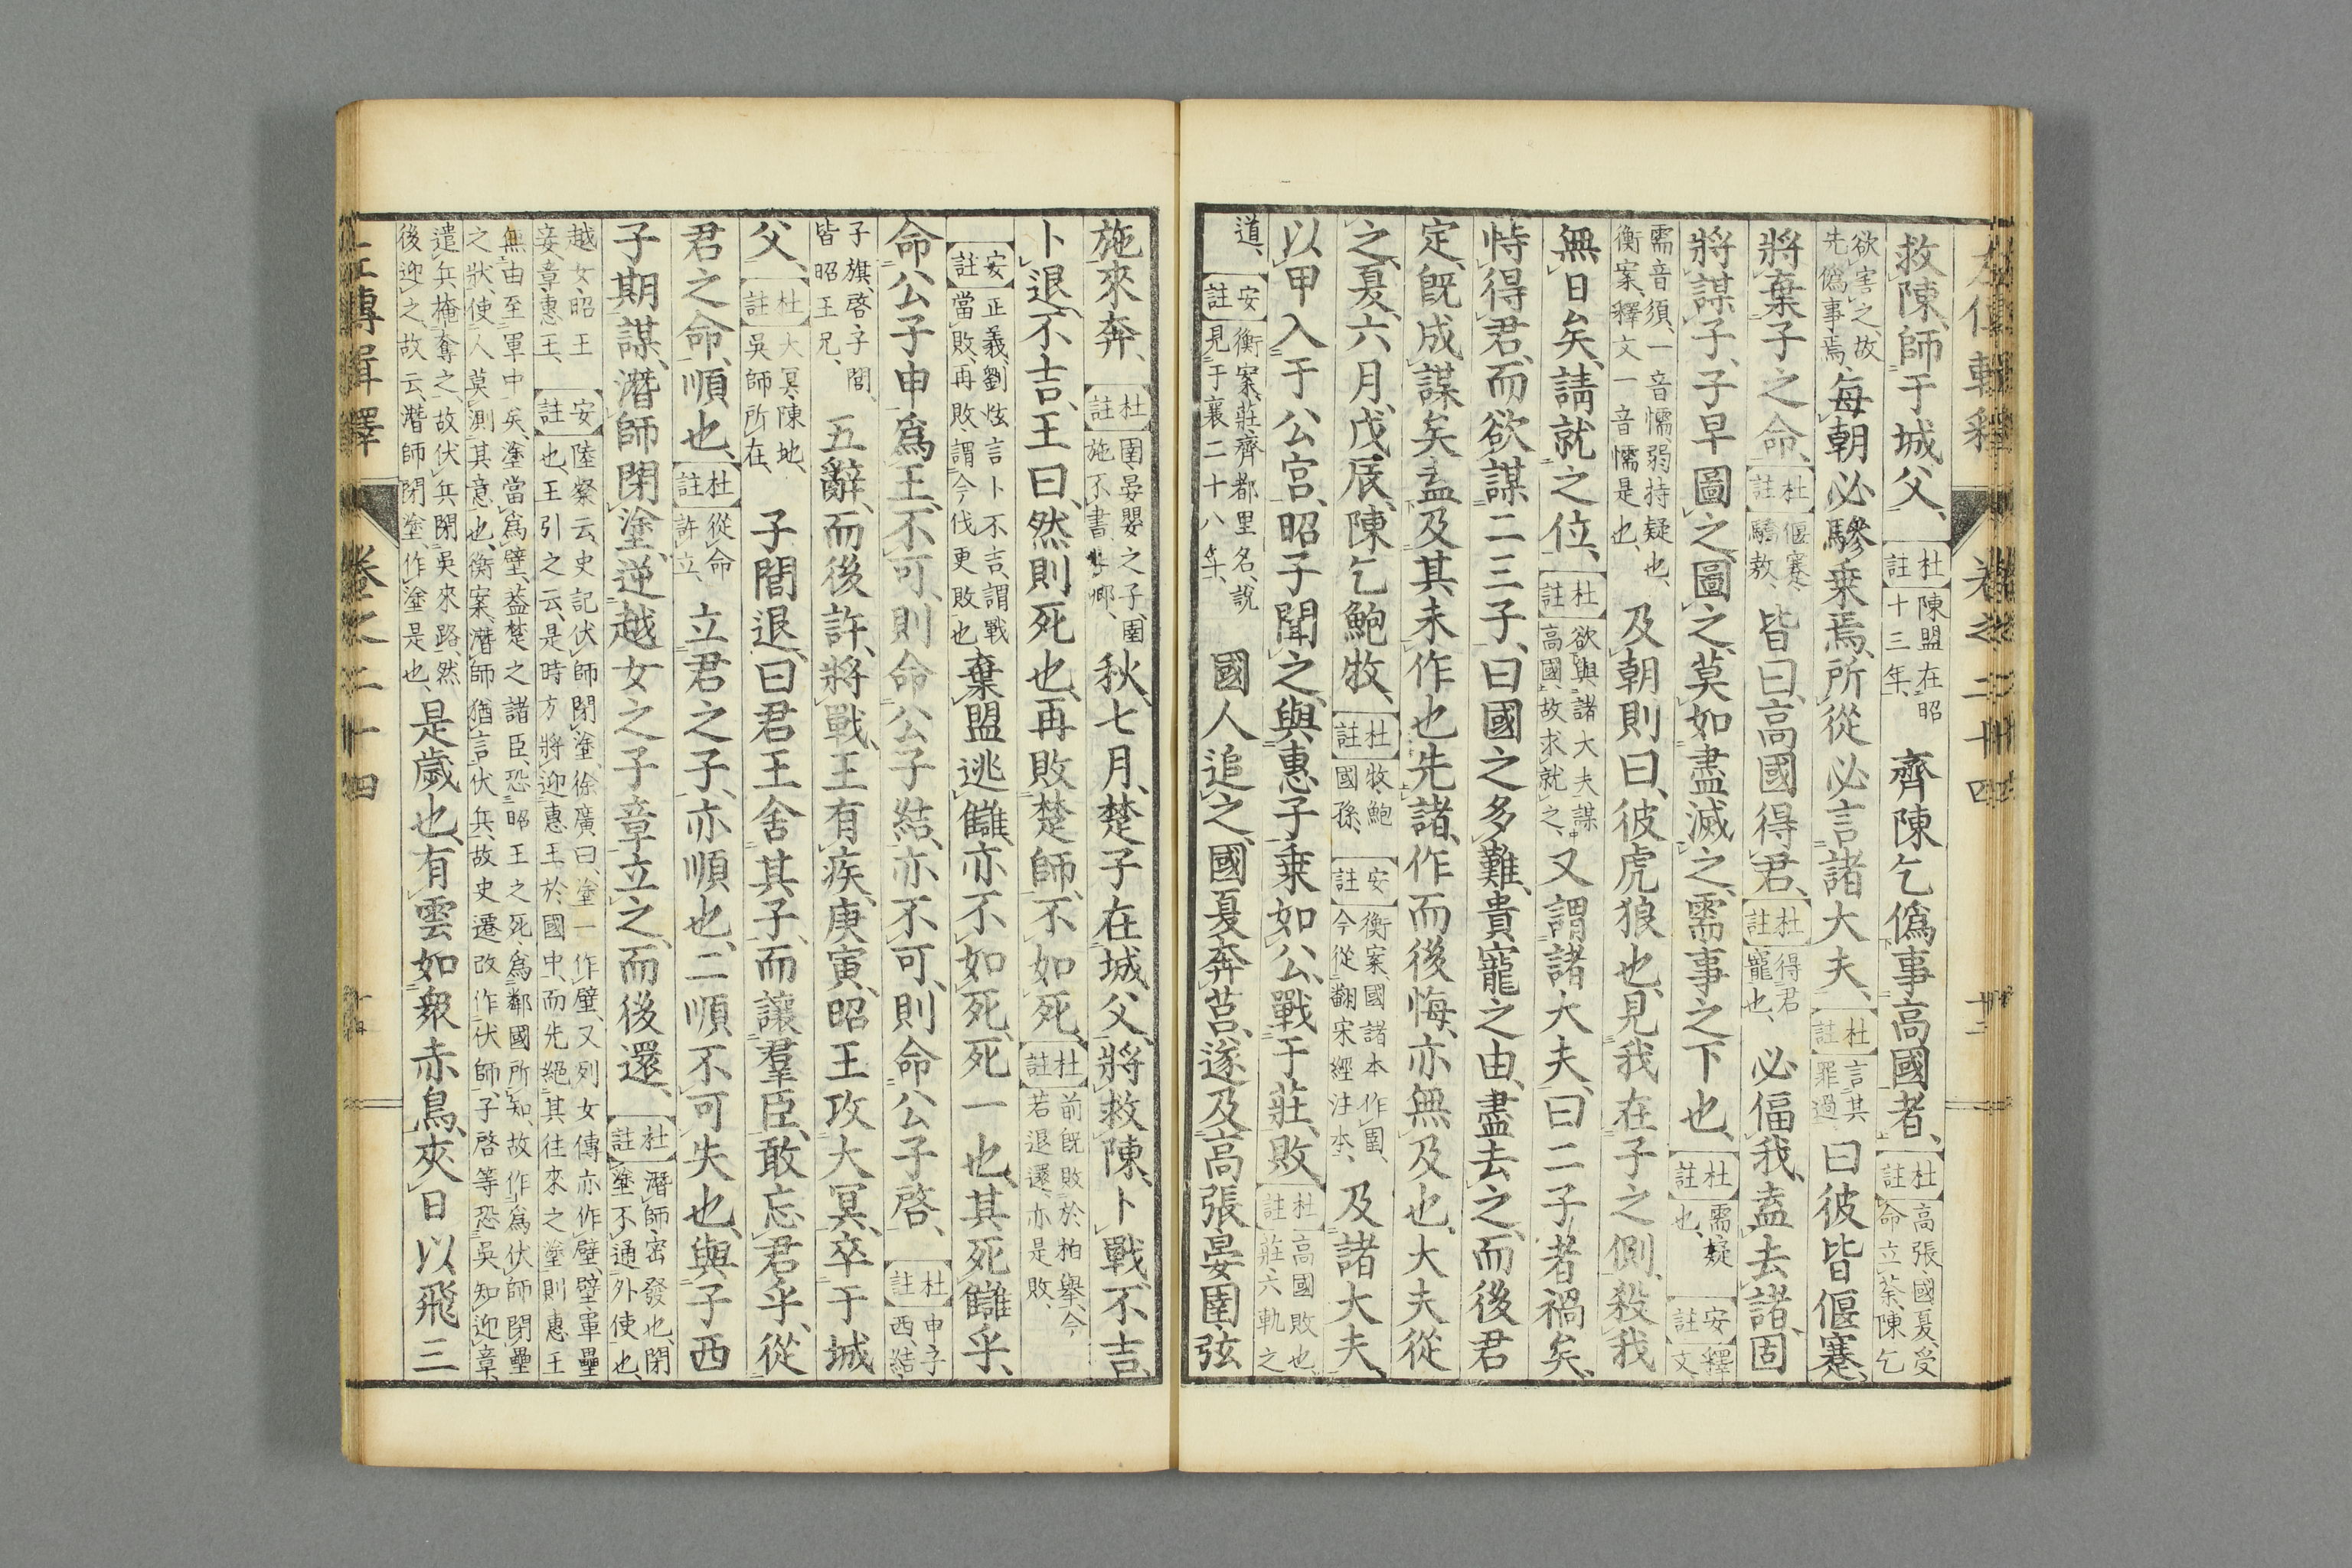 左傳輯釋　卷之二十四　十二
救陳、師于城父、杜註陳盟在昭十三年、齊陳乞僞事高國者、杜註高張、國夏、受命立荼、陳乞
欲害之、故先僞事焉、每朝必驂乘焉、所從必言諸大夫、杜註言其罪過曰彼皆偃蹇、
將棄子之命、杜註偃蹇、驕敖、皆曰、高國得君、杜註得君寵也、必偪我、盍去諸、固
將謀子、子早圖之、圖之、莫如盡滅之、需事之下也、杜註需、疑也、安註釋文、
需音須、一音懦、弱持疑也、衡案、釋文一音懦是也、及朝則曰、彼虎狼也、見我在子之側、殺我
無日矣、請就之位、杜註欲與諸大夫謀高國、故求就之、又謂諸大夫、曰二子者禍矣、
恃得君、而欲謀二三子、曰國之多難、貴寵之由、盡去之、而後君
定、既成謀矣、盍及其未作也先諸、作而後悔、亦無及也、大夫從
之、夏、六月、戊辰、陳乞鮑牧、杜註牧、鮑國孫、安註衡案、國諸本作圉、今從翻宋經注本、及諸大夫、
以甲入于公宮、昭子聞之、與惠子乘如公、戰于莊、敗、杜註高國敗也、莊、六軌之
道、安註衡案、莊、齊都里名、說見于襄二十八年、國人追之、國夏奔莒、遂及高張晏圉弦
施來奔、杜註圉、晏嬰之子、圉施不書、非卿、秋、七月、楚子在城父、將救陳、卜戰不吉、
卜退、不吉、王曰、然則死也、再敗楚師、不如死、杜註前既敗於柏舉、今若退還、亦是敗、
安註正義、劉炫言卜不吉、謂戰當敗、再敗謂今伐更敗也棄盟逃讎、亦不如死、死一也、其死讎乎、
命公子申爲王、不可、則命公子結、亦不可、則命公子啓、杜註申、子西、結、
子旗、啓、子閭、皆昭王兄、五辭、而後許、將戰、王有疾、庚寅、昭王攻大冥、卒于城
父、杜註大冥、陳地、吳師所在、子閭退、曰君王舍其子、而讓羣臣、敢忘君乎、從
君之命、順也、杜註從命許立、立君之子、亦順也、二順不可失也、與子西
子期謀、潛師閉塗、逆越女之子章立之、而後還、杜註潛師、密發也、閉塗、不通外使也、
越女、昭王妾、章、惠王、安註陸粲云、史記伏師閉塗、徐廣曰、塗一作壁、又列女傳亦作壁、壁、軍壘也、王引之云、是時方將迎惠王於國中、而先絕其往來之塗、則惠王
無由至軍中矣、塗當爲壁、蓋楚之諸臣、恐昭王之死、爲鄰國所知、故作爲伏師閉壘之狀、使人莫測其意也、衡案、潛師猶言伏兵、故史遷改作伏師、子啓等恐吳知迎章、
遣兵掩奪之、故伏兵閉吳來路、然後迎之、故云潛師閉塗、作塗是也、是歲也、有雲如衆赤鳥、夾日以飛三
左傳輯釋　卷之二十四